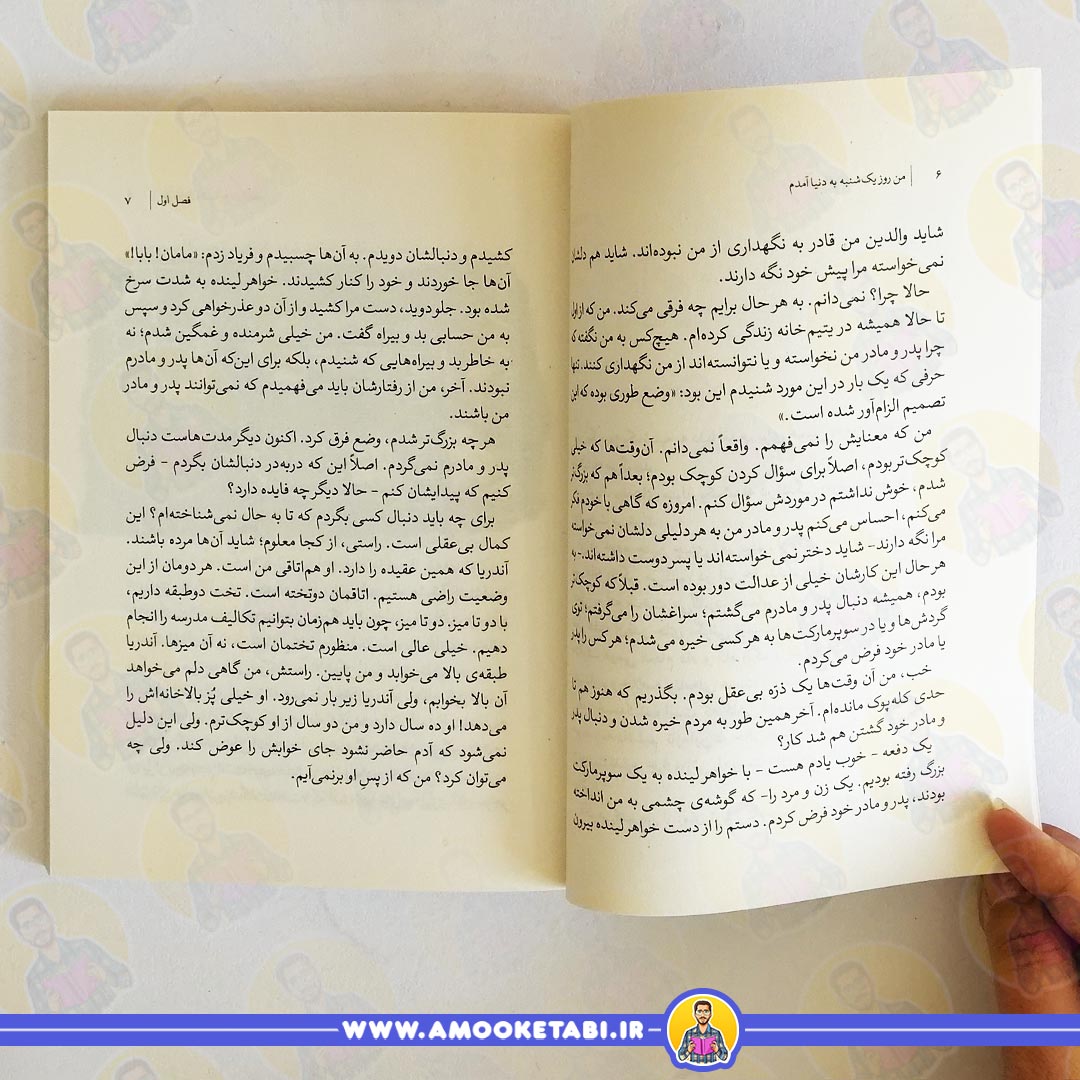 ۶ | من روز یک‌شنبه به دنیا آمدم
شاید والدین من قادر به نگهداری از من نبوده‌اند. شاید هم دلشان
نمی‌خواسته مرا پیش خود نگه دارند.
حالا چرا؟ نمی‌دانم. به هر حال برایم چه فرقی می‌کند. من که از اول
تا حالا همیشه در یتیم‌خانه زندگی کرده‌ام. هیچ‌کس به من نگفته که
چرا پدر و مادر من نخواسته و یا نتوانسته‌اند از من نگهداری کنند. تنها
حرفی که یک بار در این مورد شنیدم این بود: «وضع طوری بوده که این
تصمیم الزام‌آور شده است.»
من که معنایش را نمی‌فهمم. واقعاً نمی‌دانم. آن‌وقت‌ها که خیلی
کوچک‌تر بودم، اصلاً برای سؤال کردن کوچک بودم؛ بعداً هم که بزرگ‌تر
شدم، خوش نداشتم در موردش سؤال کنم. امروزه که گاهی با خودم فکر
می‌کنم، احساس می‌کنم پدر و مادر من به هر دلیلی دلشان نمی‌خواسته
مرا نگه دارند- شاید دختر نمی‌خواسته‌اند یا پسر دوست داشته‌اند.- به
هر حال این کارشان خیلی از عدالت دور بوده است. قبلاً که کوچک‌تر
بودم، همیشه دنبال پدر و مادرم می‌گشتم؛ سراغشان را می‌گرفتم؛ توی
گردش‌ها و یا در سوپرمارکت‌ها به هر کسی خیره می‌شدم؛ هر کس را پدر
یا مادر خود فرض می‌کردم.
خب، من آن وقت‌ها یک ذرّه بی‌عقل بودم. بگذریم که هنوز هم تا
حدی کله‌پوک مانده‌ام. آخر همین طور به مردم خیره شدن و دنبال پدر
و مادر خود گشتن هم شد کار؟
یک دفعه - خوب یادم هست - با خواهر لینده به یک سوپرمارکت
بزرگ رفته بودیم. یک زن و مرد را- که گوشه‌ی چشمی به من انداخته
بودند، پدر و مادر خود فرض کردم. دستم را از دست خواهر لینده بیرون
فصل اول | ۷
کشیدم و دنبالشان دویدم. به آن‌ها چسبیدم و فریاد زدم: «مامان! بابا!»
آن‌ها جا خوردند و خود را کنار کشیدند. خواهر لینده به شدت سرخ
شده بود. جلو دوید، دست مرا کشید و از آن دو عذرخواهی کرد و سپس
به من حسابی بد و بیراه گفت. من خیلی شرمنده و غمگین شدم؛ نه
به خاطر بد و بیراه‌هایی که شنیدم، بلکه برای این‌که آن‌ها پدر و مادرم
نبودند. آخر، من از رفتارشان باید می‌فهمیدم که نمی‌توانند پدر و مادر
من باشند.
هر چه بزرگ‌تر شدم، وضع فرق کرد. اکنون دیگر مدت‌هاست دنبال
پدر و مادرم نمی‌گردم. اصلاً این که دربه‌در دنبالشان بگردم - فرض
کنیم که پیدایشان کنم - حالا دیگر چه فایده دارد؟
برای چه باید دنبال کسی بگردم که تا به حال نمی‌شناخته‌ام؟ این
کمال بی‌عقلی است. راستی، از کجا معلوم؛ شاید آن‌ها مرده باشند.
آندریا که همین عقیده را دارد. او هم‌اتاقی من است. هر دومان از این
وضعیت راضی هستیم. اتاقمان دوتخته است. تخت دوطبقه داریم،
با دو تا میز. دو تا میز، چون باید هم‌زمان بتوانیم تکالیف مدرسه را انجام
دهیم. خیلی عالی است. منظورم تختمان است، نه آن میزها. آندریا
طبقه‌ی بالا می‌خوابد و من پایین. راستش، من گاهی دلم می‌خواهد
آن بالا بخوابم، ولی آندریا زیر بار نمی‌رود. او خیلی پُز بالاخانه‌اش را
می‌دهد! او ده سال دارد و من دو سال از او کوچک‌ترم. ولی این دلیل
نمی‌شود که آدم حاضر نشود جای خوابش را عوض کند. ولی چه
می‌توان کرد؟ من که از پسِ او برنمی‌آیم.
WWW.AMOOKETABI.IR